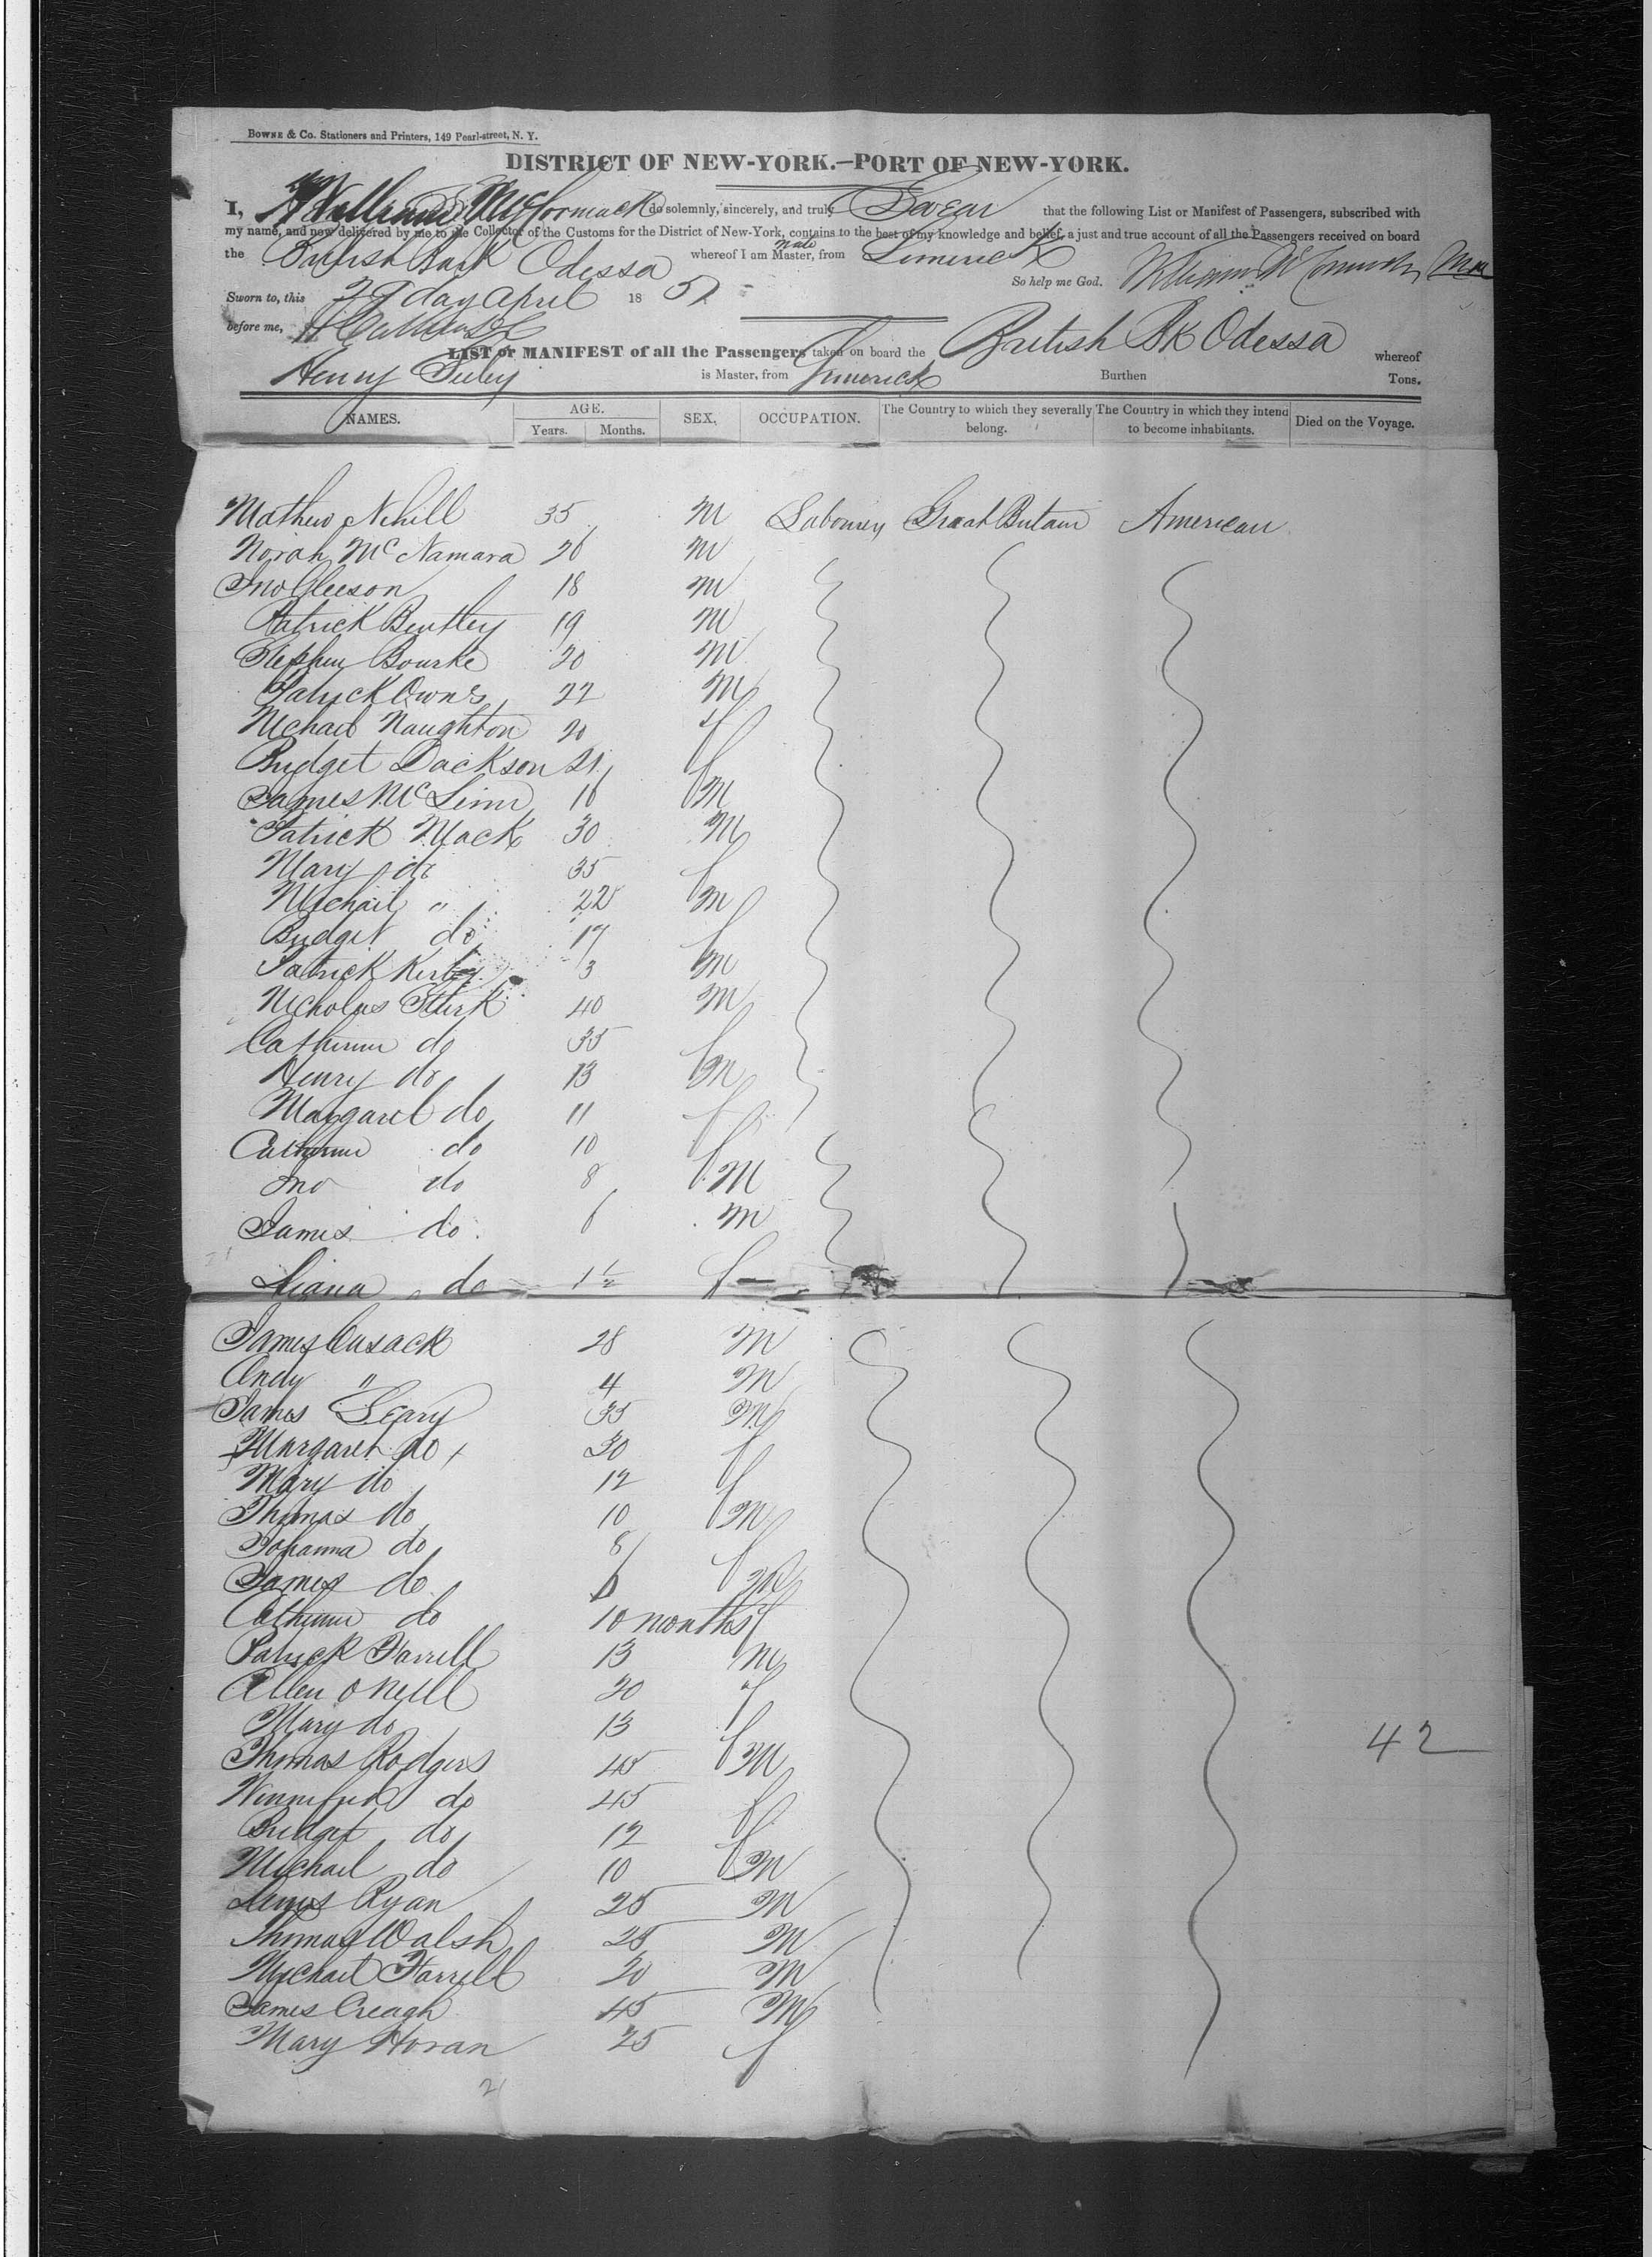 BOWNE & Co. Stationers and Printers, 149 Pearl-street, N. Y.
DISTRICT OF NEW-YORK.—PORT OF NEW-YORK.
I, William McCormack do solemnly, sincerely, and truly Swear that the following List or Manifest of Passengers, subscribed with
my name, and now delivered by me to the Collector of the Customs for the District of New-York, contains to the best of my knowledge and belief, a just and true account of all the Passengers received on board
the British Bark Odessa whereof I am Master, Mate from Limerick
So help me God. William McCormack Mate
Sworn to, this 29 day April 18 51
before me,
LIST or MANIFEST of all the Passengers taken on board the British Bk Odessa whereof
Henry is Master, from Limerick Burthen Tons.
NAMES. AGE. Years. Months. SEX, OCCUPATION. The Country to which they severally belong. The Country in which they intend to become inhabitants. Died on the Voyage.
Mathew Nihill 35 M Great Britain American
Norah McNamara 26 M
Jno Gleeson 18 M
Patrick Bentley 19 M
Stephen Bourke 20 M
Patrick Owns 22 M
Michael Naughton 20 f
Bridget Dackson 21 f
James McLinn 16 M
Patrick Mack 30 M
Mary do 35 f
Michail " 22 M
Bridget do 17 f
Patrick Kirby 3 M
Nicholas 40 M
Catherine do 35 f
Henry do 13 M
Margaret do 11 f
Catherine do 10 f
Jno do 8 M
James do 6 M
do 1½ f
James Cusack 28 M
Andy " 4 M
James Leary 35 M
Margaret do 30 f
Mary do 12 f
Thomas do 10 M
Johanna do 8 f
James do 6 M
Catherine do 10 months f
Patrick Farrell 13 M
Ellen ONeill 20 f
Mary do 13 f
Thomas Rodgers 45 M
Winnifred do 45 f
Bridget do 12 f
Michael do 10 M
42
James Ryan 25 M
Thomas Walsh 25 M
Michael Farrell 20 M
James Creagh 45 M
Mary Horan 25 f
21